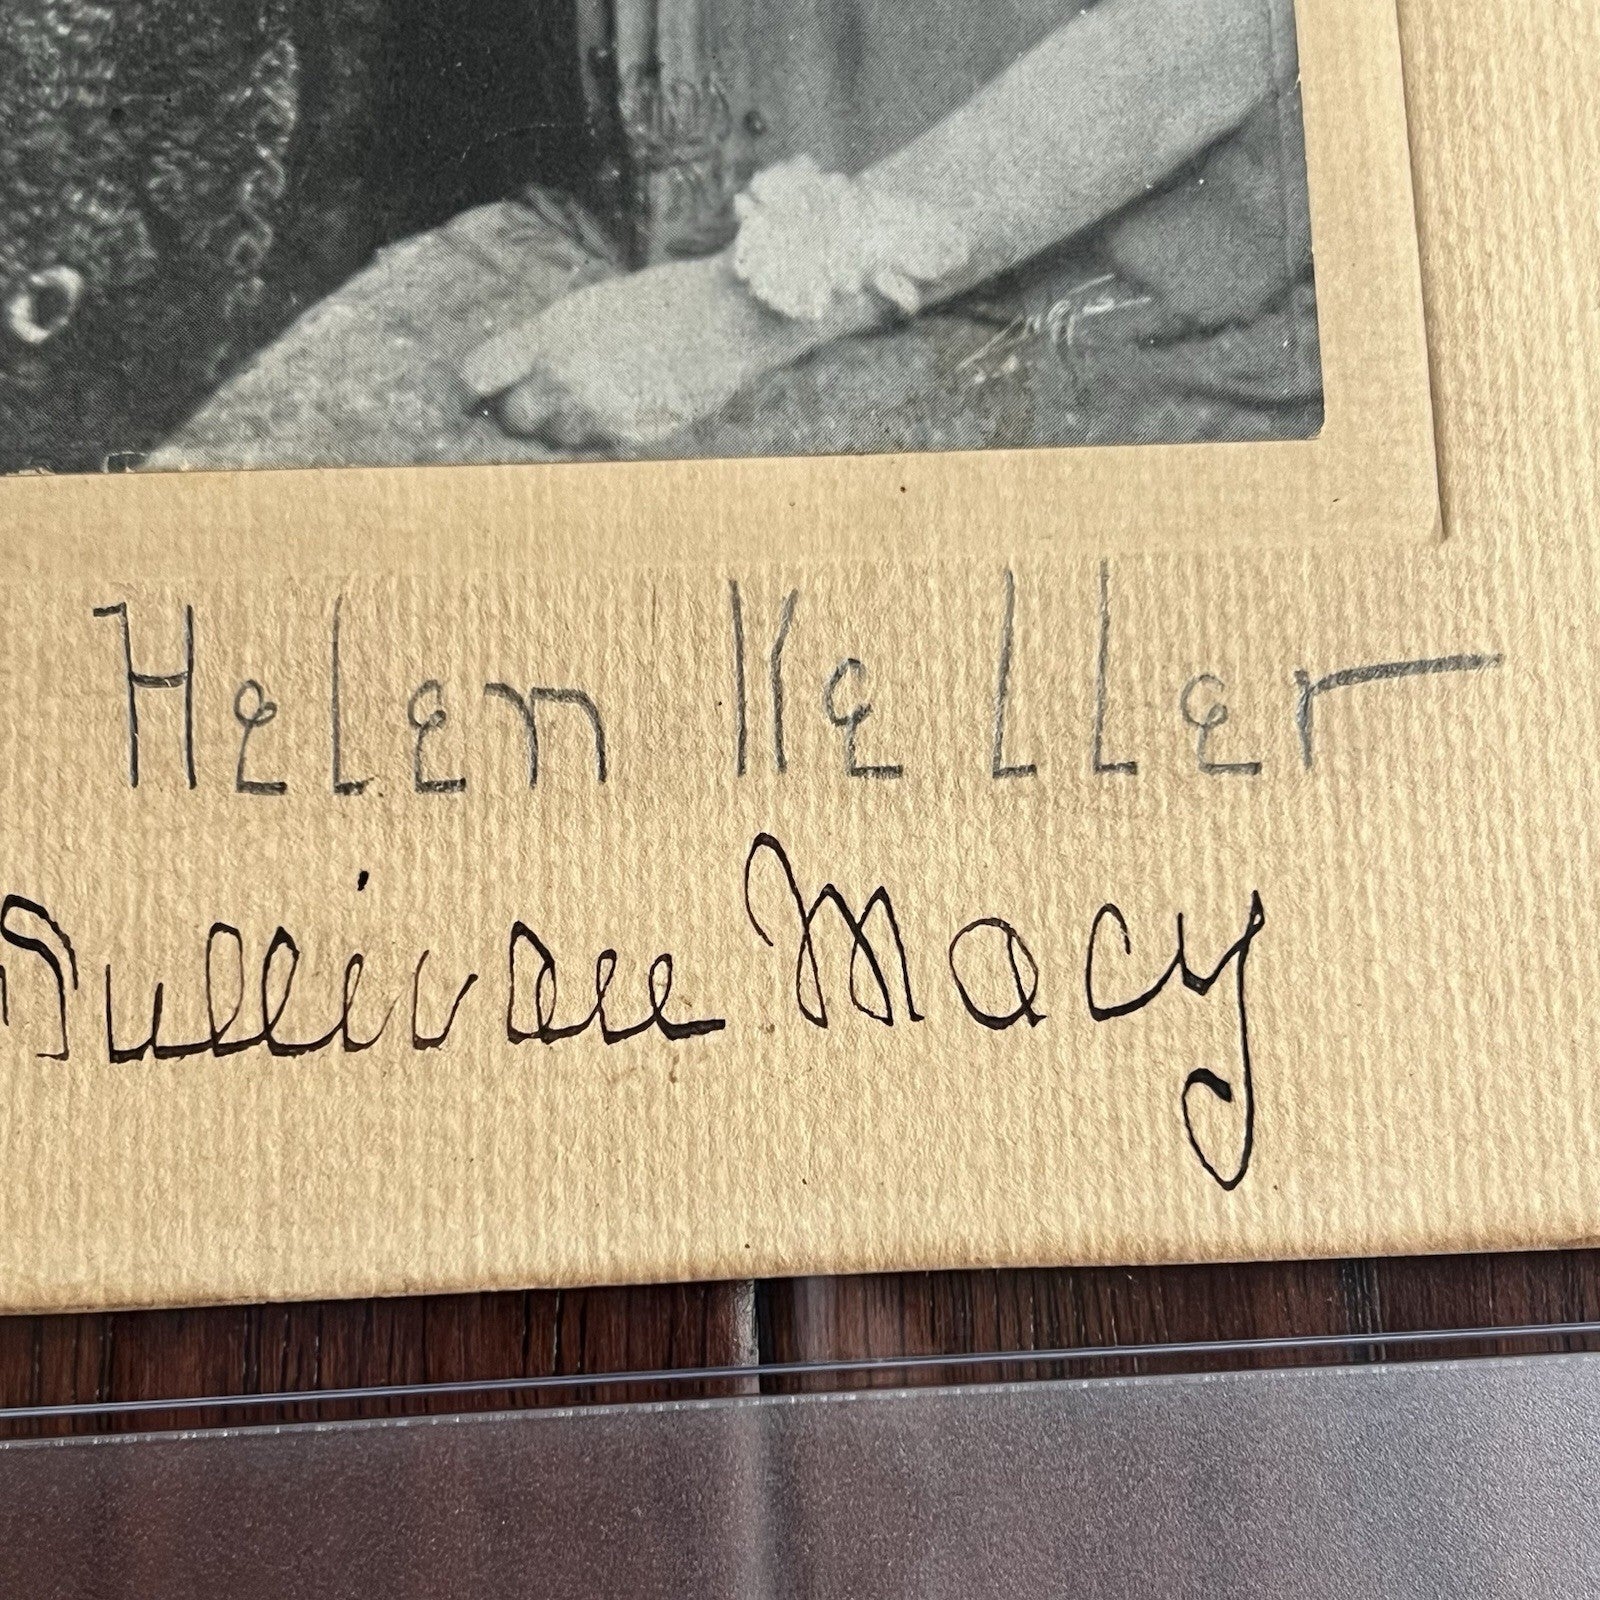 Helen Keller
Sullivan Macy